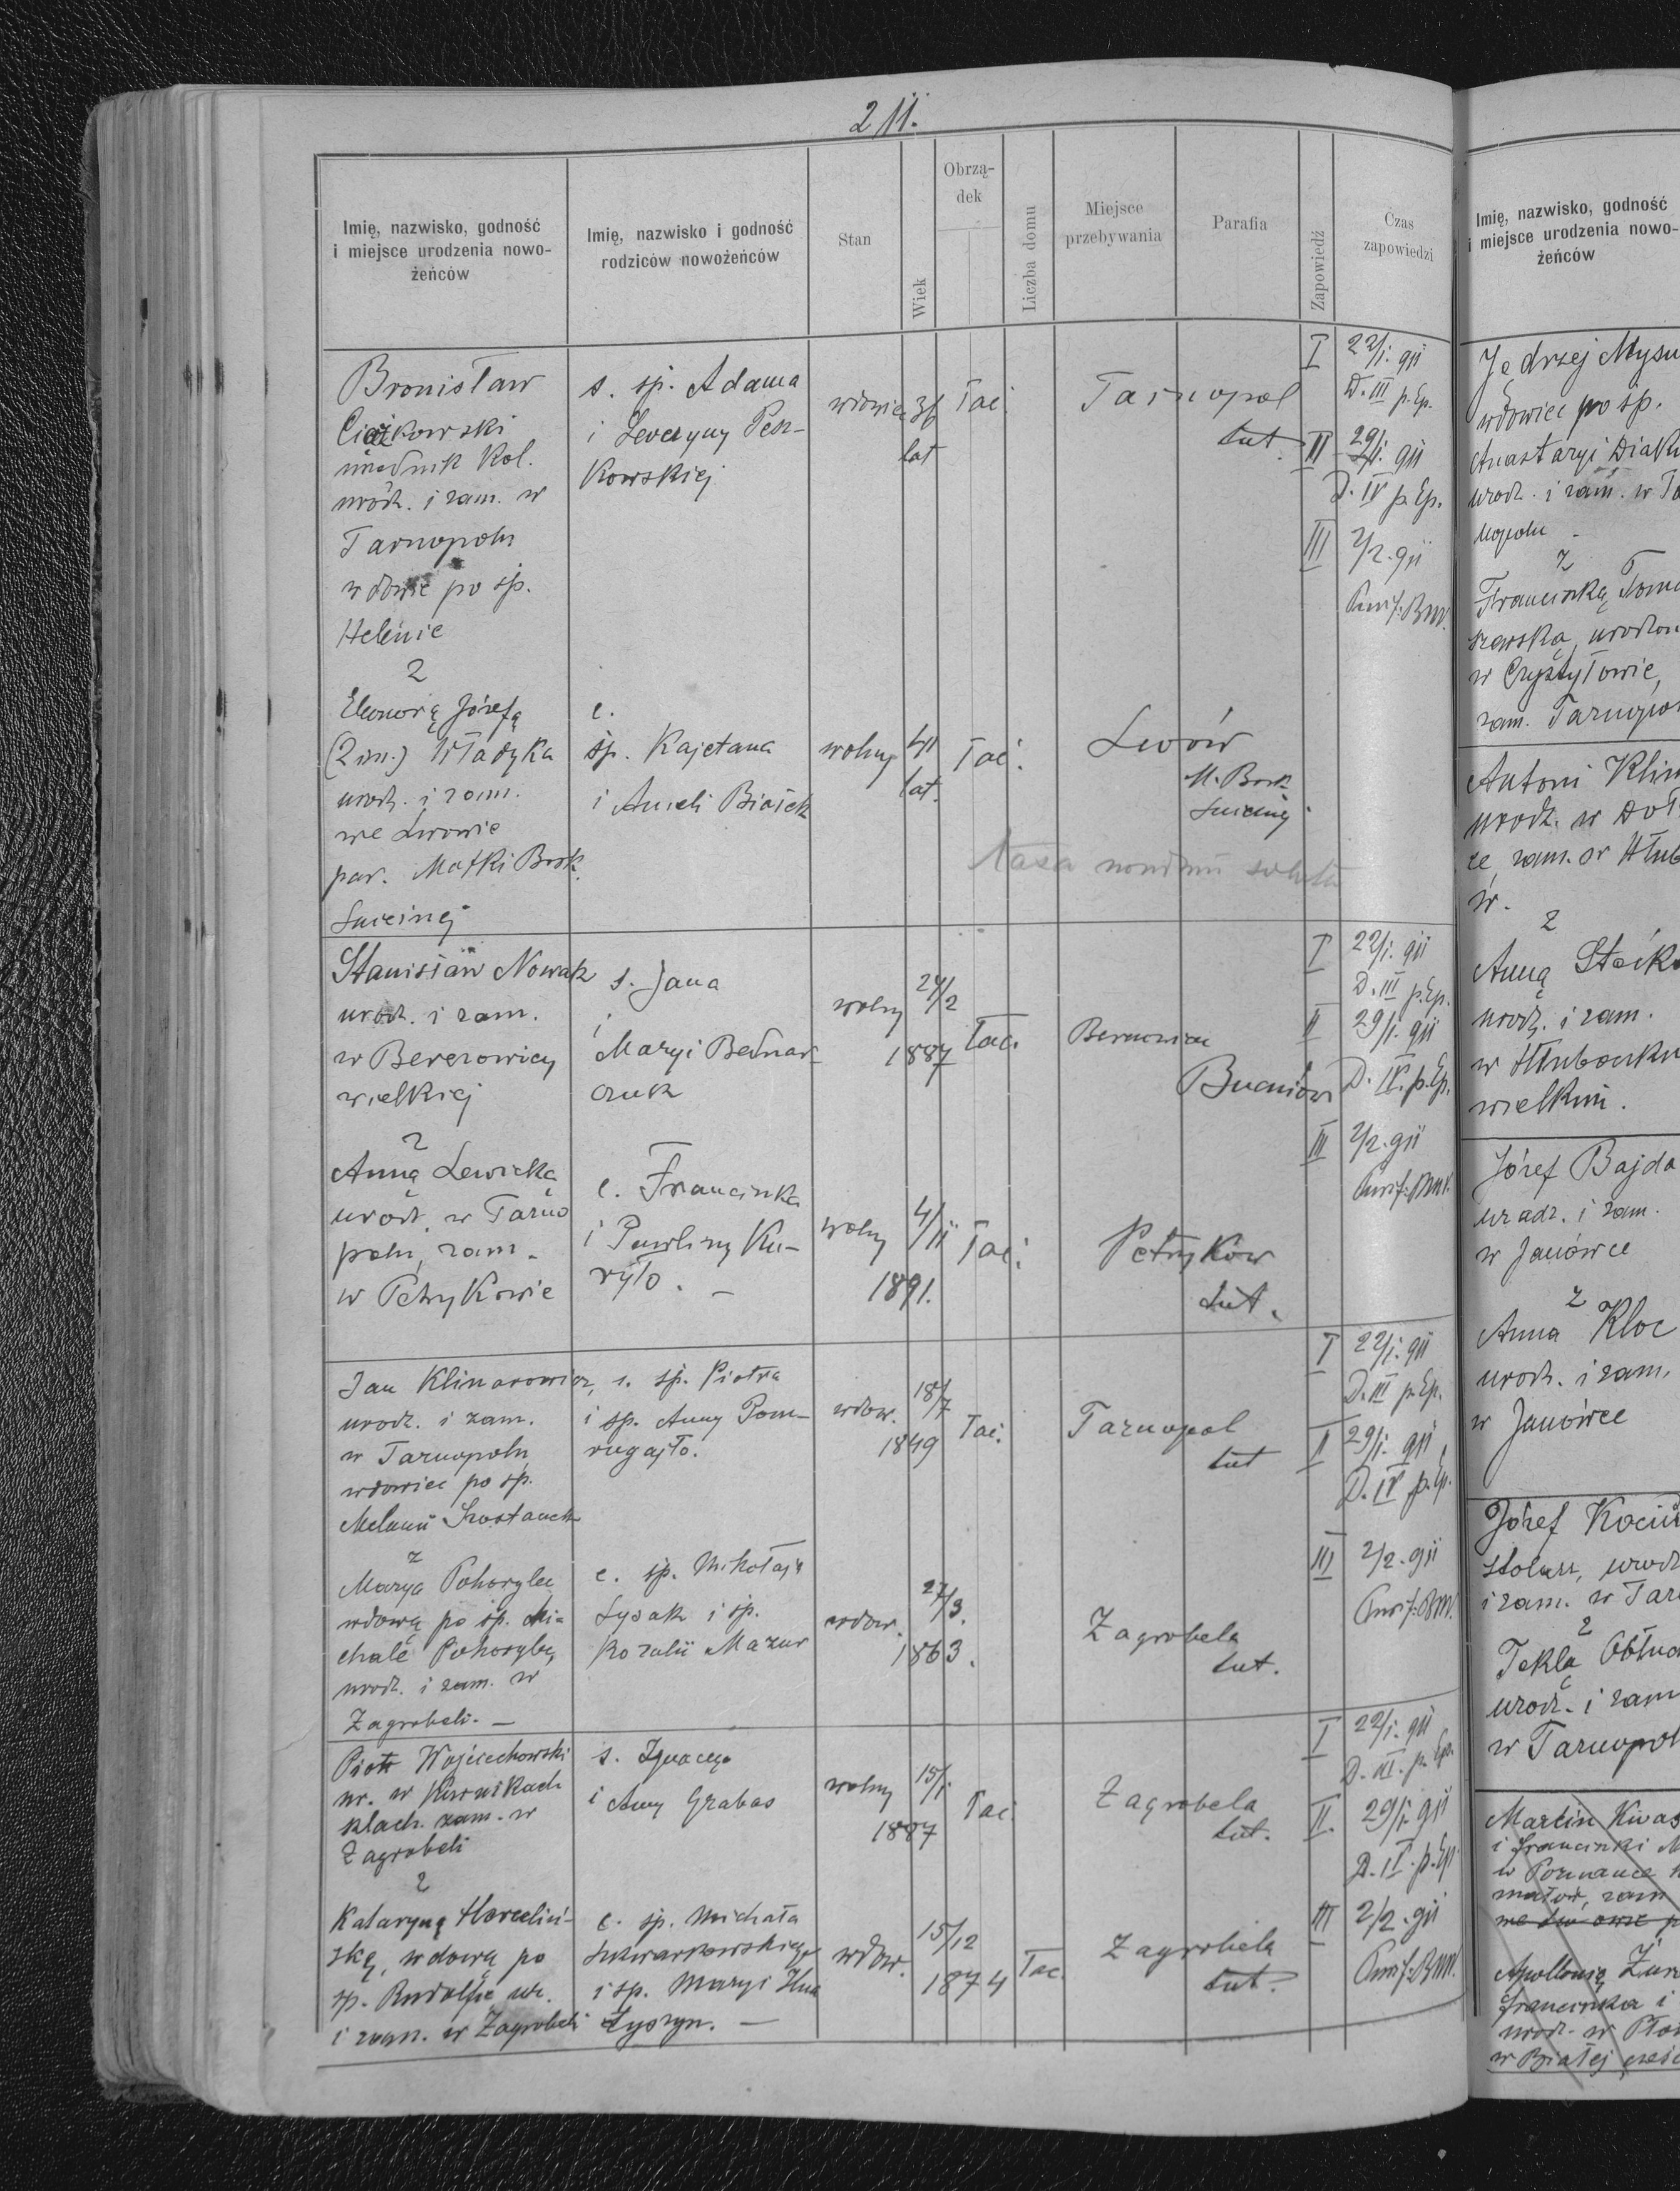 211.
Imię, nazwisko, godność
i miejsce urodzenia nowo-
żeńców
Imię, nazwisko i godność
rodziców nowożeńców
Stan
Wiek
Obrzą-
dek
Liczba domu
Miejsce
przebywania
Parafia
Zapowiedź
Czas
zapowiedzi
Bronisław
urzędnik kol.
urodz. i zam. w
Tarnopolu
po śp.
Helenie
z
s. śp. Adama
i Seweryny Pen-
kowskiej
wdowiec 36
lat
łać.
Tarnopol
tut.
I 22/1. 911
D. III p. Ep.
II 29/1. 911
D. IV p. Ep.
III 2/2. 911
Purif. BMV.
Eleonorą Józefą
(2 im.) Władyka
urodz. i zam.
we Lwowie
par. Matki Bosk.
Śnieżnej
c.
śp. Kajetana
i Anieli Białek
wolny 41
lat.
łać.
Lwów
M. Bosk.
Śnieżnej
Stanisław Nowak
urodz. i zam.
w Berezowicy
wielkiej
z
s. Jana
i
Maryi Bednar-
czuk
wolny 24/2
1887
łać.
Berezowica
Bucniów
I 22/1. 911
D. III p. Ep.
II 29/1. 911
D. IV. p. Ep.
III 2/2. 911
Purif. BMV.
Anną Lewicką
urodz. w Tarno
polu, zam.
w Petrykowie
c. Franciszka
i Pauliny Ku-
ryło. —
wolny 4/11
1891.
łać.
Petryków
tut.
Jan Klimarowicz,
urodz. i zam.
w Tarnopolu
wdowiec po śp.
Melanii Szostanek
z
s. śp. Piotra
i śp. Anny Pom-
rugajło.
wdow. 18/7
1849
łać.
Tarnopol
tut
I 22/1. 911
D. III p. Ep.
II 29/1. 911
D. IV p. Ep.
III 2/2. 911
Purif. BMV.
Marya Pohorylec
wdową po śp. Mi-
chale Pohorylec,
urodz. i zam. w
Zagrobeli. —
c. śp. Mikołaja
Łysak i śp.
Rozalii Mazur
wdow. 27/3.
1863.
Zagrobela
tut.
Piotr Wojciechowski
ur. w Kurnikach
szlach. zam. w
Zagrobeli
z
s. Ignacego
i Anny Grabas
wolny 15/1.
1887
łać.
Zagrobela
tut.
I 22/1. 911
D. III. p. Ep.
II. 29/1. 911
D. IV. p. Ep.
III 2/2. 911
Purif. BMV.
Katarzyną
skę, wdową po
śp. Rudolfie ur.
i zam. w Zagrobeli
c. śp. Michała
i śp. Maryi
Łyszyn. —
wdow. 15/12
1874
łac.
Zagrobela
tut.
Imię, nazwisko, godność
i miejsce urodzenia nowo-
żeńców
Jędrzej
wdowiec po śp.
Anastazyi
urodz. i zam. w
z
Franciszką
urodzon
ram.
Antoni
urodz. w
z
Anną
urodz. i zam.
w Hłuboczku
wielkim.
Józef Bajda
urodz. i zam.
w Janówce
z
Anna Kloc
urodz. i zam.
w Janówce
Józef
stolarz, urodz
i zam. w
z
Tekla
urodz. i zam
w Tarnopol
Marcin
i Franciszki
Apollonią
Franciszka i
urodz. w
w Białej